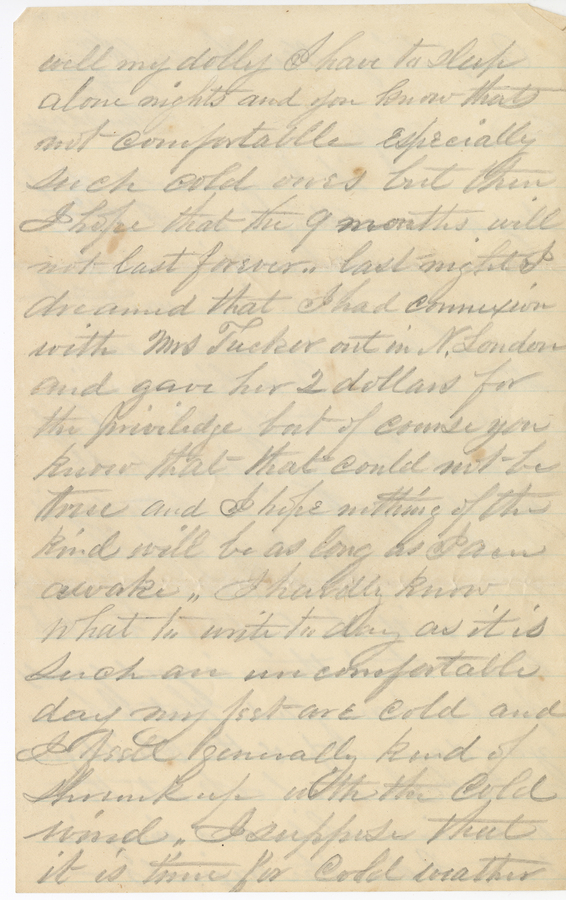 well my dolly I have to sleep
alone nights and you know thats
not comfortable especially
such cold ones but then
I hope that the 9 months will
not last forever,, last night I
dreamed that I had connexion
with Mrs Tucker out in N. London
and gave her 2 dollars for
the priviledge but of course you
know that that could not be
true and I hope nothing of the
kind will be as long as I am
awake,, I hardly know
what to write to day as it is
such an uncomfortable
day my feet are cold and
I feel generally kind of
shrunk up with the Cold
wind,, I suppose that
it is time for Cold weather